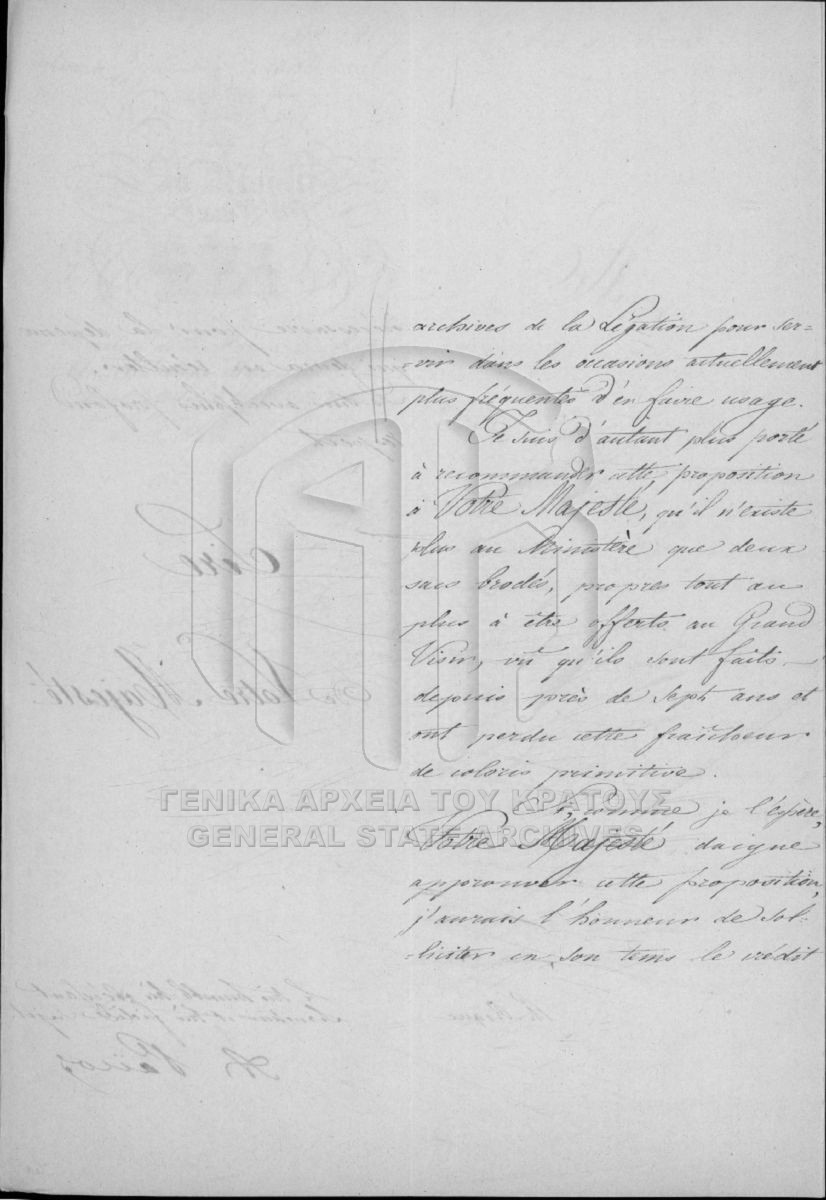 archives de la Légation pour ser-
=vir dans les occasions actuellement
plus fréquentes d'en faire usage.
Je suis d'autant plus porté
à recommander cette proposition
à Votre Majesté, qu'il n'existe
plus au Ministère que deux
sacs brodés, propres tout au
plus à être offerts au Grand
Visir, vû qu'ils sont faits
depuis près de sept ans et
ont perdu cette fraîcheur
de coloris primitive.
Si, comme je l'éspère,
Votre Majesté daigne
approuver cette proposition,
j'aurais l'honneur de sol-
=liciter en son tems le crédit
ΓΕΝΙΚΑ ΑΡΧΕΙΑ ΤΟΥ ΚΡΑΤΟΥΣ
GENERAL STATE ARCHIVES